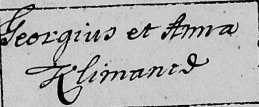 Georgius et Anna
Klimanið